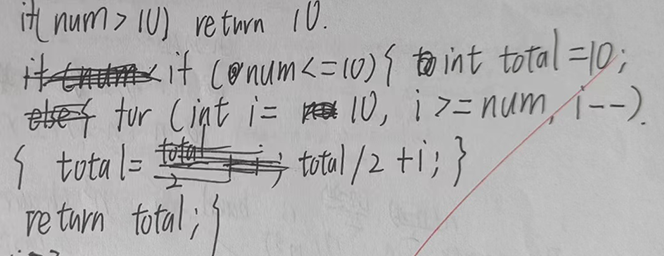 if(num>10) return 10.
if (num<=10){ int total=10;
for (int i= 10, i>=num, i--).
{ total= total/2+i; }
return total; }